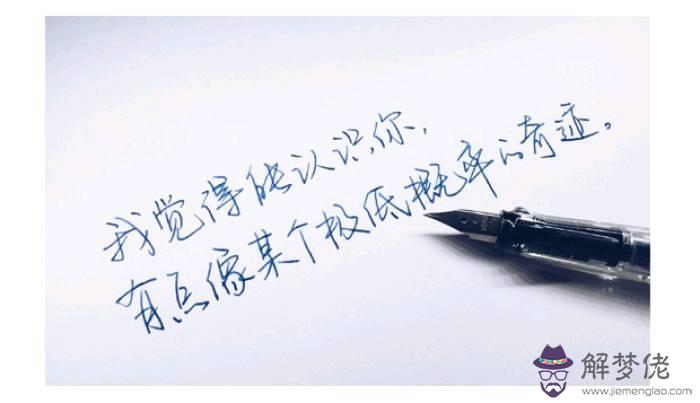 我觉得能认识你，
有点像某个极低概率的奇迹。
解梦佬
www.jiemenglao.com